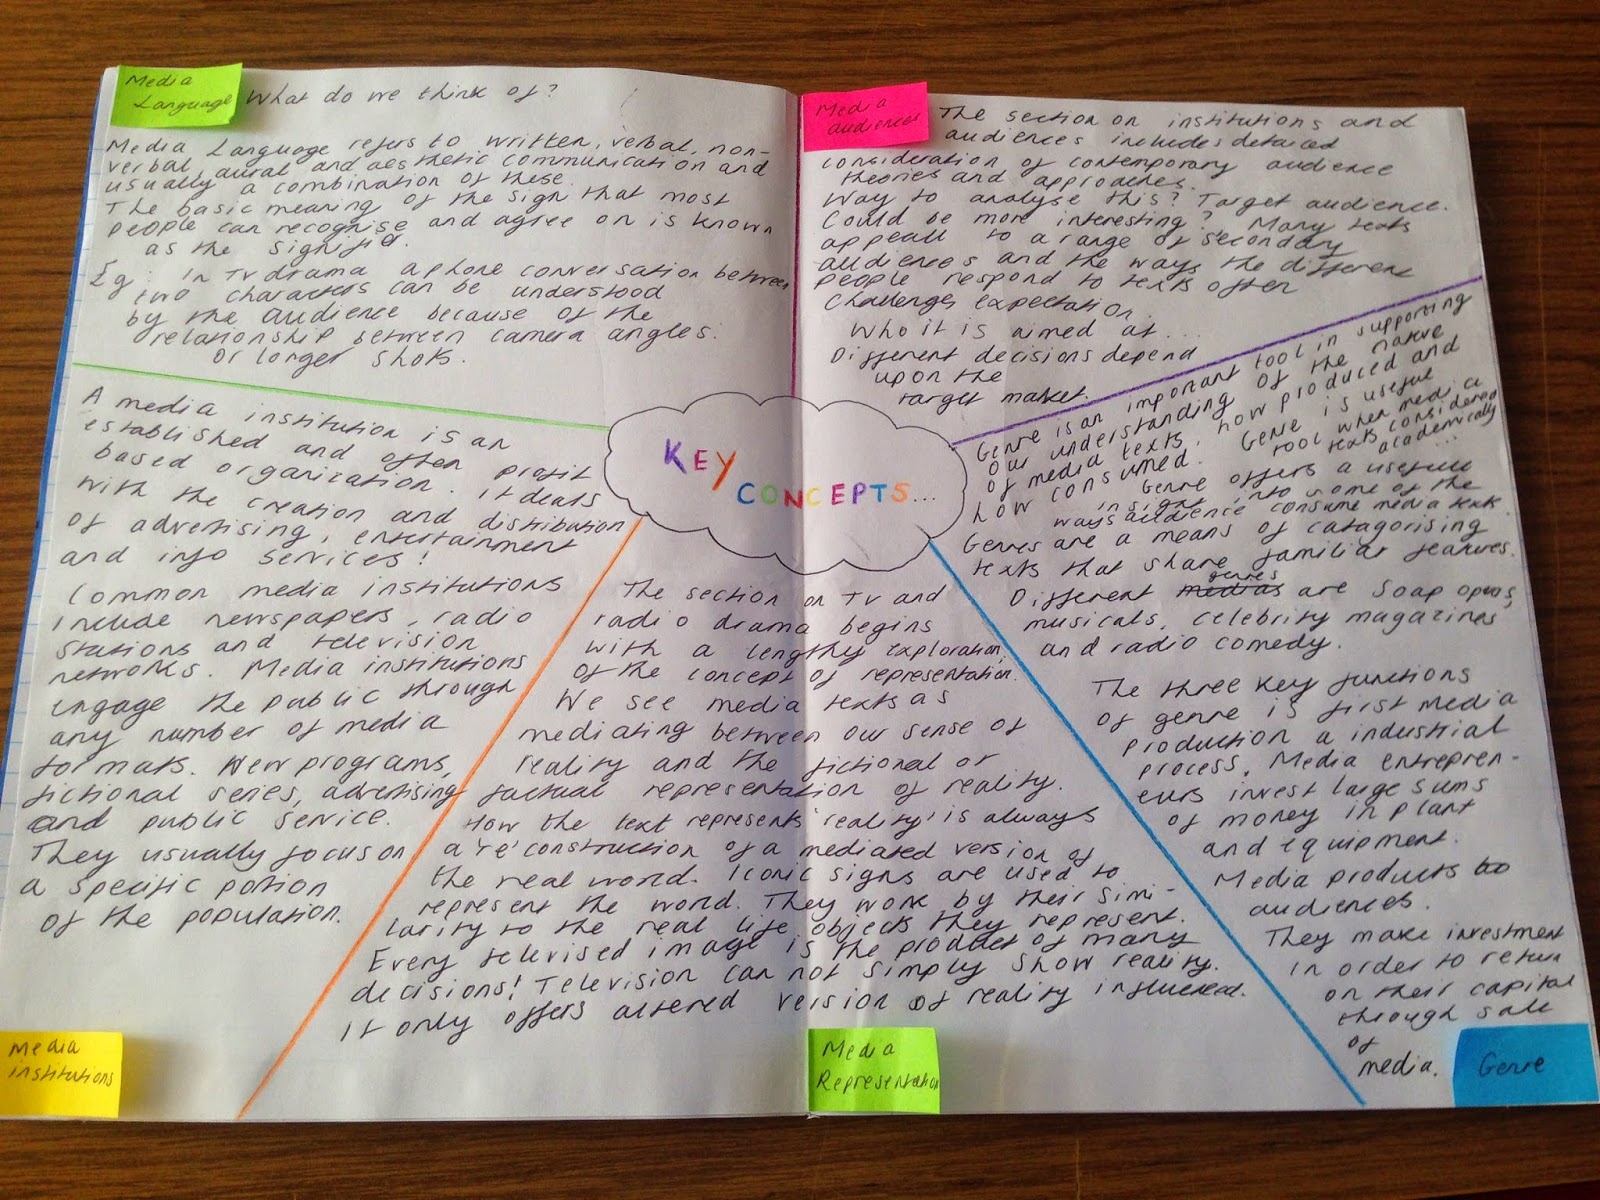 Media
Language
What do we think of?
Media Language refers to written, verbal, non-
verbal, aural and aesthetic communication and
usually a combination of these.
The basic meaning of the sign that most
people can recognise and agree on is known
as the signifier.
Eg: in TV drama a phone conversation between
two characters can be understood
by the audience because of the
relationship between camera angles.
Or longer shots.
Media
audiences
The section on institutions and
audiences includes detailed
consideration of contemporary audience
theories and approaches.
Way to analyse this? Target audience.
Could be more interesting? Many texts
appeall to a range of secondary
audiences and the ways the different
people respond to texts often
Challenges expectation.
Who it is aimed at...
Different decisions depend
upon the
target market.
KEY
CONCEPTS...
A media institution is an
established and often profit
based organization. It deals
with the creation and distribution
of advertising, entertainment
and info services!
Common media institutions
include newspapers, radio
stations and television
networks. Media institutions
engage the public through
any number of media
formats. New programs,
fictional series, advertising
and public service.
They usually focus on
a specific portion
of the population.
Media
institutions
The section on TV and
radio drama begins
with a lengthy exploration,
of the concept of representation.
We see media texts as
mediating between our sense of
reality and the fictional or
factual representation of reality.
How the text represents 'reality' is always
a 're' construction of a mediated version of
the real world. Iconic signs are used to
represent the world. They work by their simi-
larity to the real life objects they represent.
Every televised image is the product of many
decisions! Television can not simply show reality.
It only offers altered version of reality influenced.
Media
Representation
Genre is an important tool in supporting
our understanding of the native
of media texts, how produced and
how consumed. Genre is useful
tool when media
texts considered
academically
...
Genre offers a usefull
insight into some of the
ways audience consume media text.
Genres are a means of catagorising
texts that share familiar features.
Different medias genres are Soap opras,
musicals, celebrity magazines
and radio comedy.
The three key functions
of genre is first Media
production a industrial
process. Media entrepren-
eurs invest large sums
of money in plant
and equipment.
Media products to
audiences.
They make investment
in order to return
on their capital
through sale
of
media.
Genre